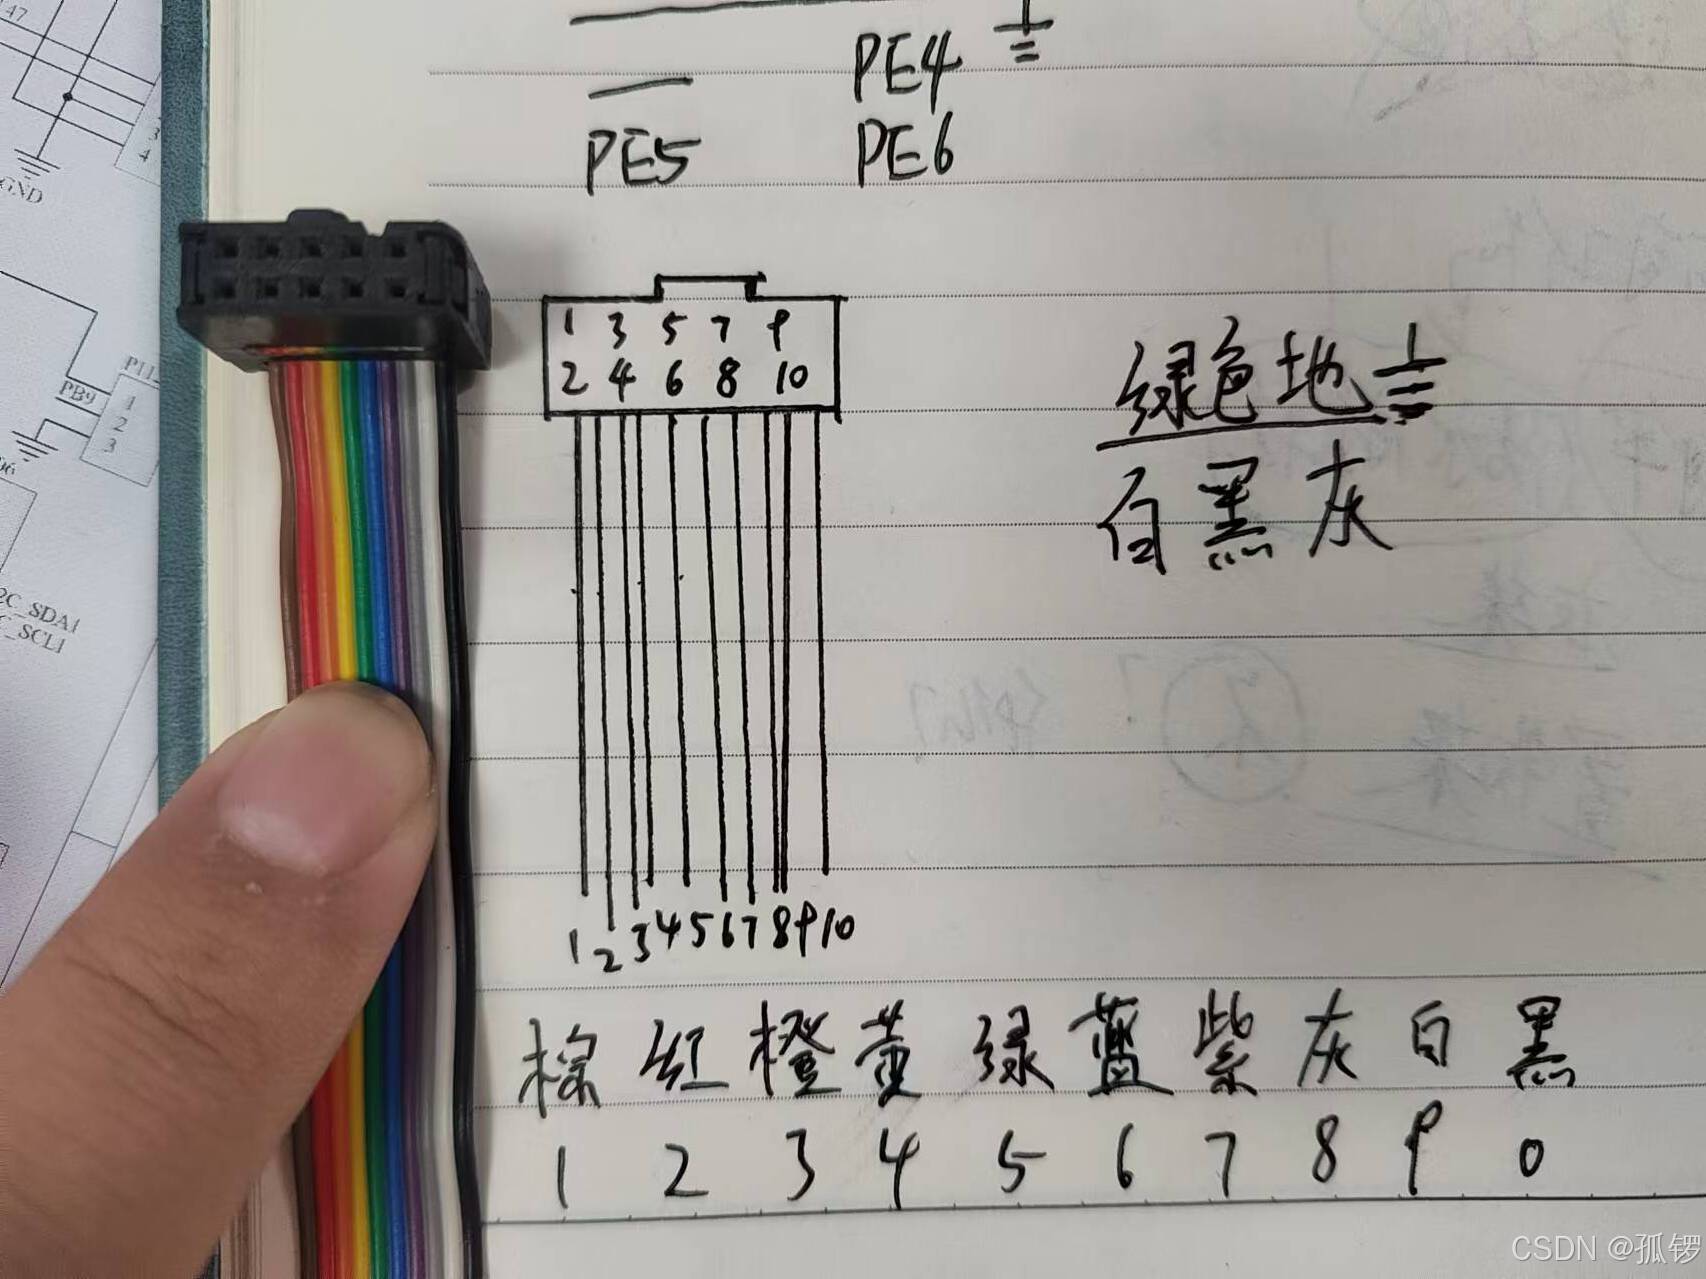 147
3
4
GND
PB9
1
2
3
I2C_SDA1
C_SCL1
PE4
PE5 PE6
1 3 5 7 9
2 4 6 8 10
绿色地
白黑灰
1 2 3 4 5 6 7 8 9 10
棕 红 橙 黄 绿 蓝 紫 灰 白 黑
1 2 3 4 5 6 7 8 9 0
CSDN @孤锣